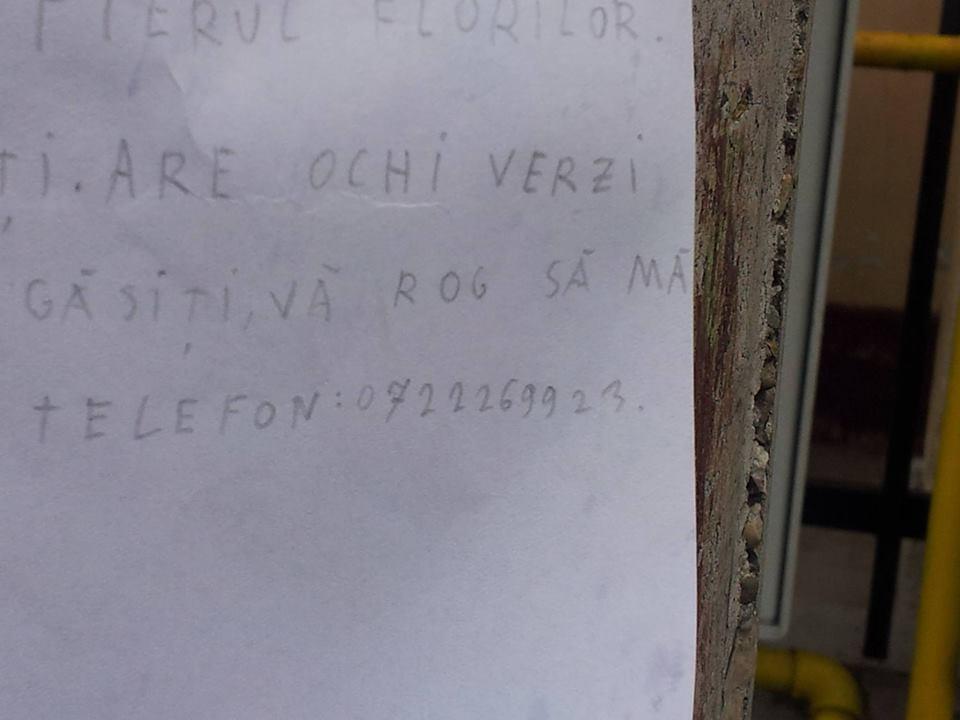 TIERUL FLORILOR.
ȚI. ARE OCHI VERZI
GĂSIȚI, VĂ ROG SĂ MĂ
TELEFON: 0722269923.